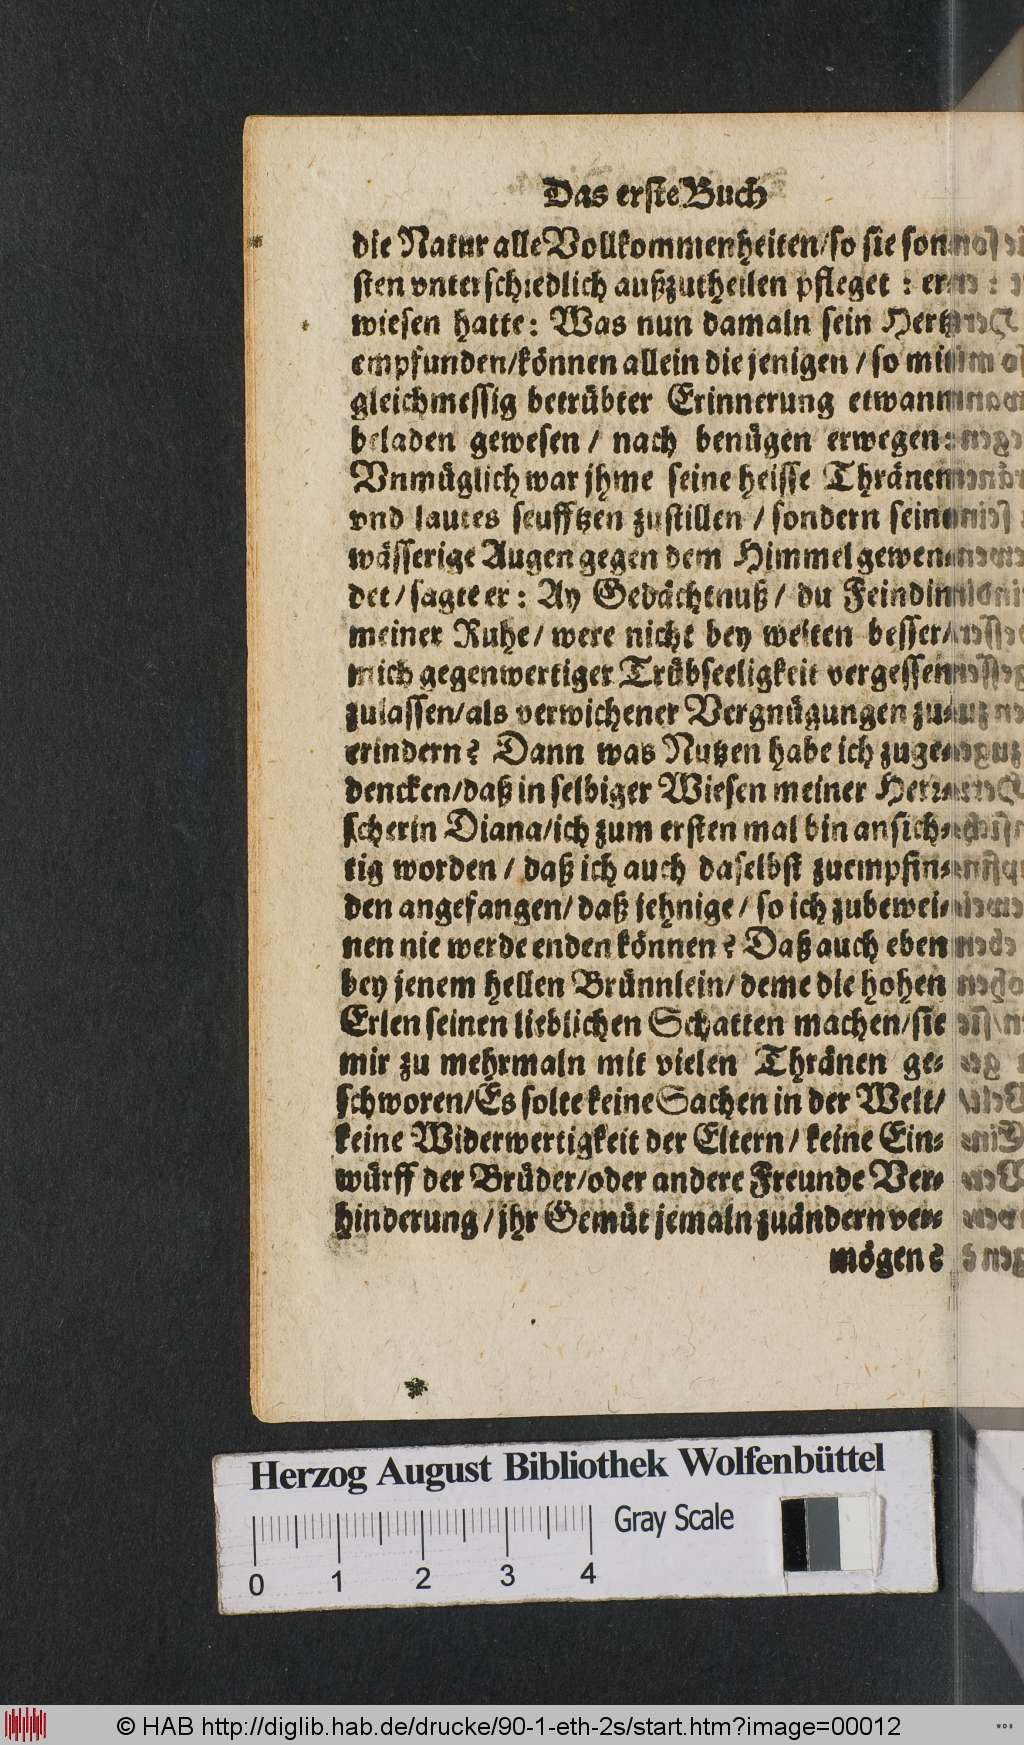 Das erste Buch
die Natur alle Vollkommenheiten/so sie son⸗
sten vnterschiedlich außzutheilen pfleget : er⸗
wiesen hatte: Was nun damaln sein Hertz
empfunden/können allein die jenigen / so mit
gleichmessig betrübter Erinnerung etwann
beladen gewesen / nach benügen erwegen:
Vnmüglich war jhme seine heisse Thränen
vnd lautes seufftzen zustillen / sondern seine
wässerige Augen gegen dem Himmel gewen⸗
det / sagte er : Ay Gedächtnuß / du Feindin
meiner Ruhe / were nicht bey weiten besser/
mich gegenwertiger Trübseeligkeit vergessen
zulassen/als verwichener Vergnügungen zu⸗
erindern? Dann was Nutzen habe ich zuge⸗
dencken/daß in selbiger Wiesen meiner Herr⸗
scherin Diana/ich zum ersten mal bin ansich⸗
tig worden / daß ich auch daselbst zuempfin⸗
den angefangen/ daß jehnige / so ich zubewei⸗
nen nie werde enden können? Daß auch eben
bey jenem hellen Brünnlein/ deme die hohen
Erlen seinen lieblichen Schatten machen/sie
mir zu mehrmaln mit vielen Thränen ge⸗
schworen/Es solte keine Sachen in der Welt/
keine Widerwertigkeit der Eltern / keine Ein⸗
würff der Brüder/oder andere Freunde Ver⸗
hinderung / jhr Gemüt jemaln zuändern ver⸗
mögen?
Herzog August Bibliothek Wolfenbüttel
Gray Scale
0 1 2 3 4
© HAB http://diglib.hab.de/drucke/90-1-eth-2s/start.htm?image=00012